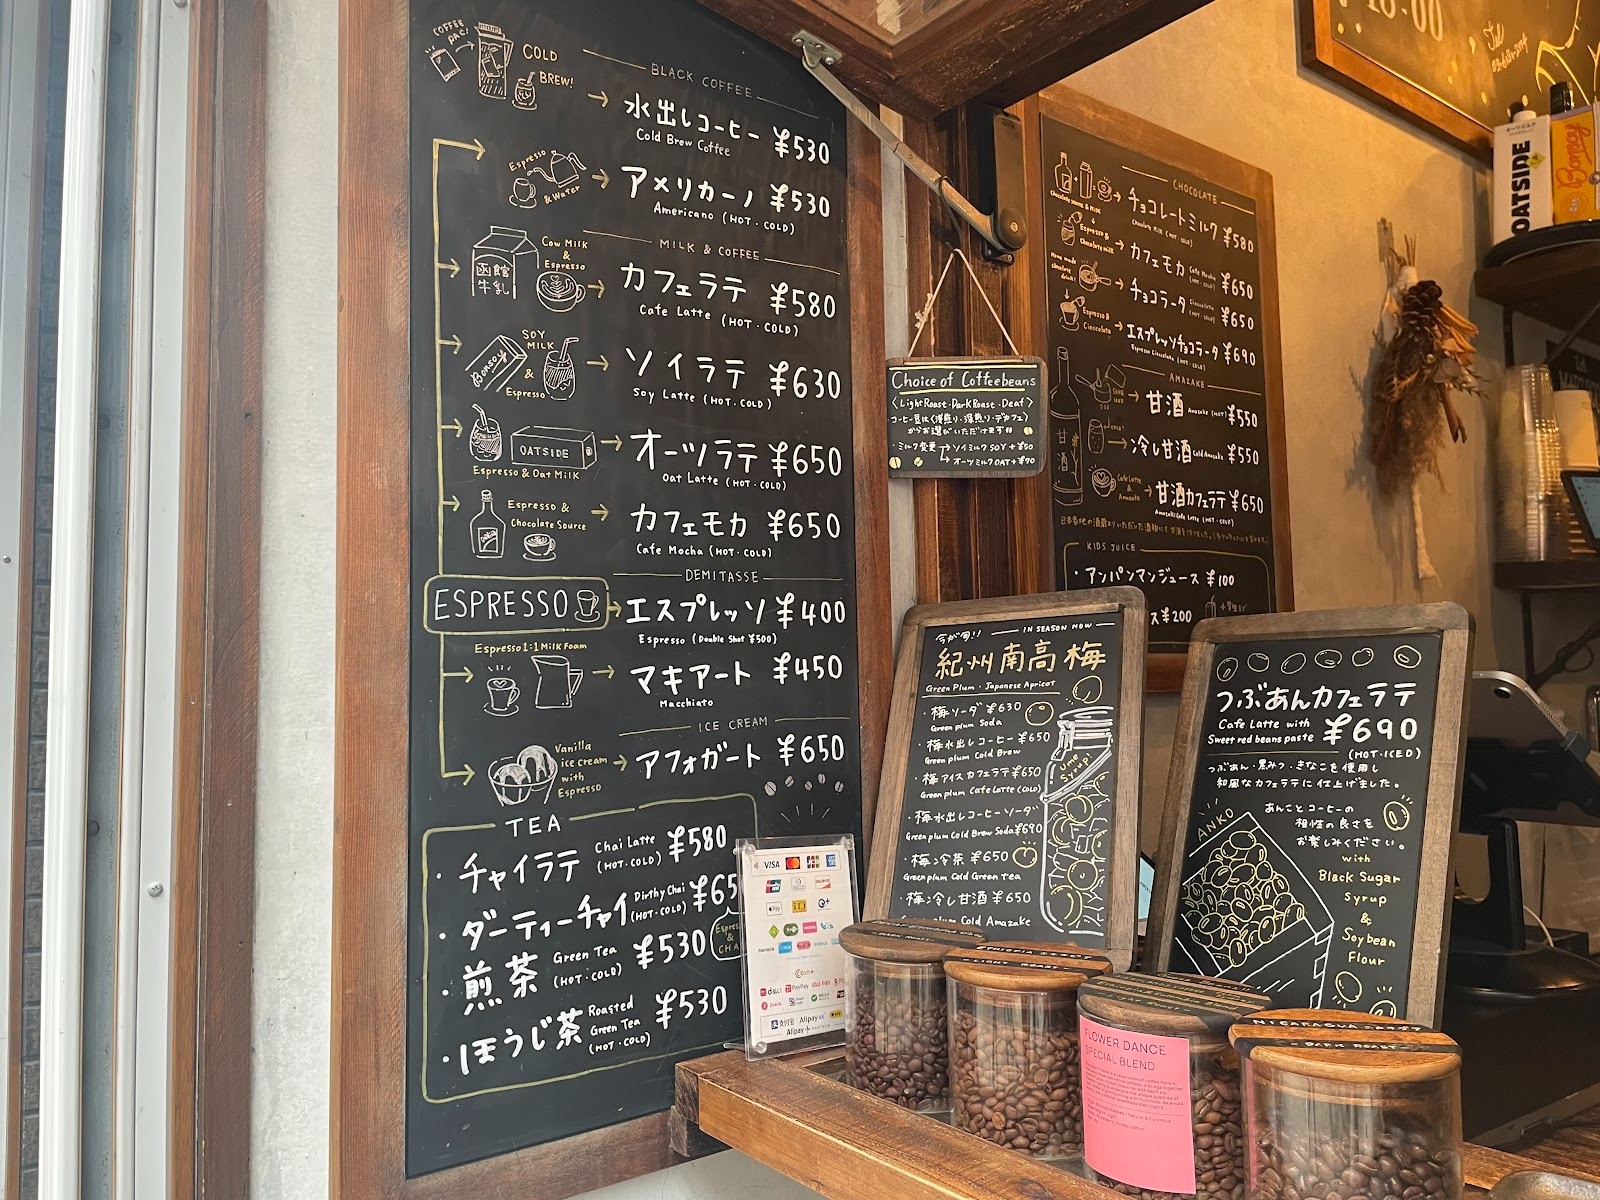 COFFEE PAC!
COLD BREW!
BLACK COFFEE
水出しコーヒー ¥530
Cold Brew Coffee
Espresso & Water
アメリカーノ ¥530
Americano (HOT・COLD)
MILK & COFFEE
函館牛乳
Cow Milk & Espresso
カフェラテ ¥580
Cafe Latte (HOT・COLD)
SOY MILK & Espresso
Bonsoy
ソイラテ ¥630
Soy Latte (HOT・COLD)
OATSIDE
Espresso & Oat Milk
オーツラテ ¥650
Oat Latte (HOT・COLD)
Espresso & Chocolate Source
カフェモカ ¥650
Cafe Mocha (HOT・COLD)
DEMITASSE
ESPRESSO
エスプレッソ ¥400
Espresso (Double Shot ¥500)
Espresso 1:1 Milk Foam
マキアート ¥450
Macchiato
ICE CREAM
Vanilla ice cream with Espresso
アフォガート ¥650
TEA
・チャイラテ Chai Latte (HOT・COLD) ¥580
・ダーティーチャイ Dirthy Chai (HOT・COLD) ¥65
・煎茶 Green Tea (HOT・COLD) ¥530
・ほうじ茶 Roasted Green Tea (HOT・COLD) ¥530
VISA
Pay
iD
Coin+
PayPay
Alipay
Choice of Coffeebeans
〈Light Roast・Dark Roast・Deaf〉
コーヒー豆は〈浅煎り・深煎り・デカフェ〉
からお選びいただけます
・ミルク変更→ソイミルク SOY +¥50
→オーツミルク OAT +¥70
CHOCOLATE
チョコレートミルク ¥580
Chocolate Milk (HOT・COLD)
Espresso & Chocolate milk
カフェモカ Cafe Mocha (HOT・COLD) ¥650
Home made chocolate drink!
チョコラータ Cioccolata (HOT・COLD) ¥650
Espresso & Cioccolata
エスプレッソチョコラータ ¥690
Espresso Cioccolata (HOT・COLD)
AMAZAKE
甘酒
甘酒 Amazake (HOT) ¥550
冷し甘酒 Cold Amazake ¥550
Cafe Latte & Amazake
甘酒カフェラテ ¥650
Amazake Cafe Latte (HOT・COLD)
KIDS JUICE
・アンパンマンジュース ¥100
ス ¥200
今が旬!! IN SEASON NOW
紀州南高梅
Green Plum・Japanese Apricot
・梅ソーダ ¥630
Green plum Soda
・梅水出しコーヒー ¥650
Green plum Cold Brew
・梅アイスカフェラテ ¥650
Green plum Cafe Latte (COLD)
・梅水出しコーヒーソーダ
Green plum Cold Brew Soda ¥690
・梅冷茶 ¥650
Green plum Cold Green tea
・梅冷し甘酒 ¥650
Green plum Cold Amazake
Ume Syrup!
つぶあんカフェラテ
Cafe Latte with
Sweet red beans paste ¥690
(HOT・ICED)
つぶあん・黒みつ・きなこを使用し
和風なカフェラテに仕上げました。
あんことコーヒーの
相性の良さを
お楽しみください。
with
Black Sugar
Syrup
&
Soybean
Flour
ANKO
OATSIDE
Bonsoy
LIGHT ROAST
FLOWER DANCE
SPECIAL BLEND
NICARAGUA
DARK ROAST